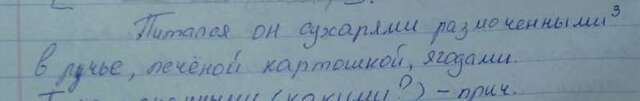 Питался он сухарями размоченными³
в ручье, печёной картошкой, ягодами.
(какими?) – прич.